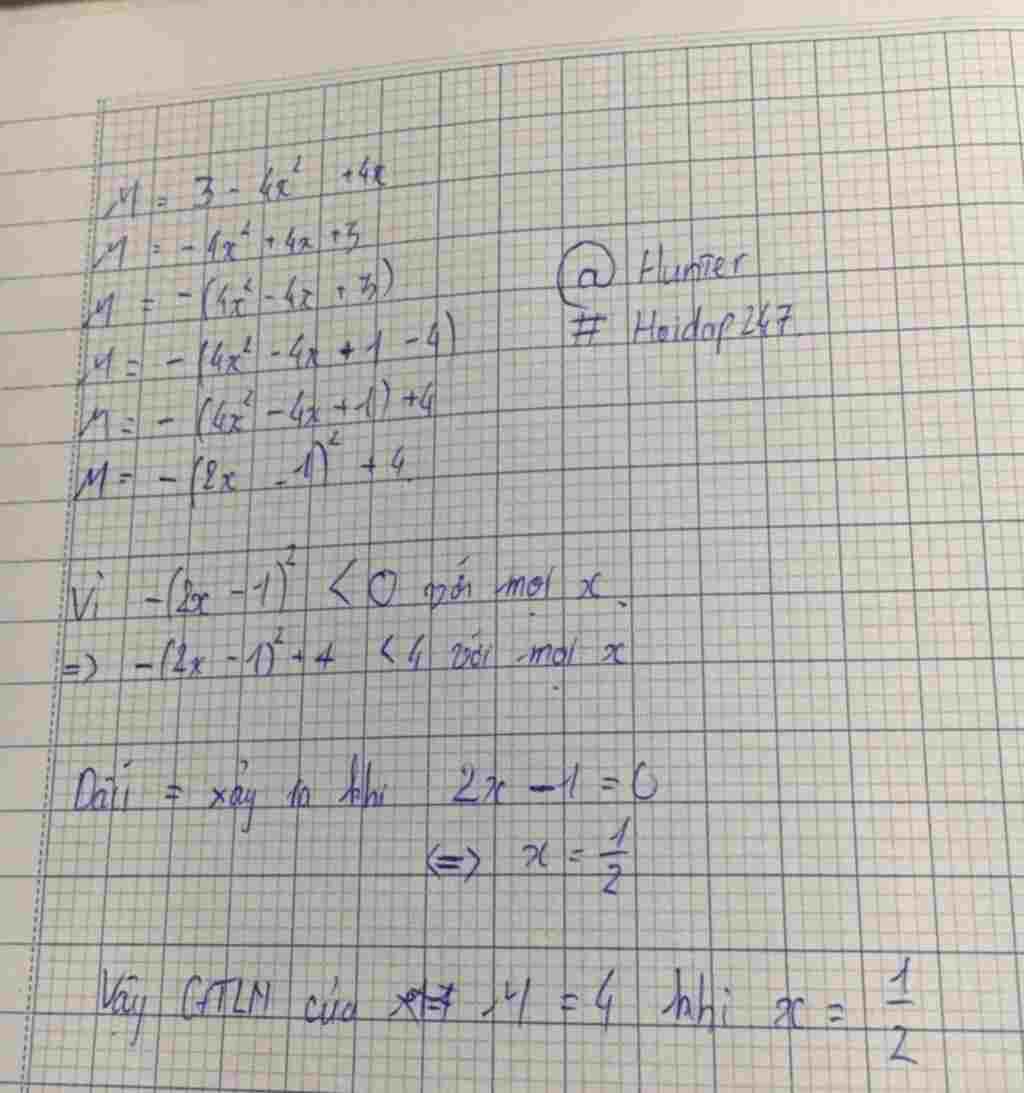 M = 3 - 4x² + 4x
M = - 4x² + 4x + 3
M = - (4x² - 4x + 3)
M = - (4x² - 4x + 1 - 4)
M = - (4x² - 4x + 1) + 4
M = - (2x - 1)² + 4
@ Hunter
# Hoidap247
Vì -(2x - 1)² < 0 với mọi x
=> -(2x - 1)² + 4 < 4 với mọi x
Dấu = xảy ra khi 2x - 1 = 0
<=> x = 1/2
Vậy GTLN của M = 4 khi x = 1/2